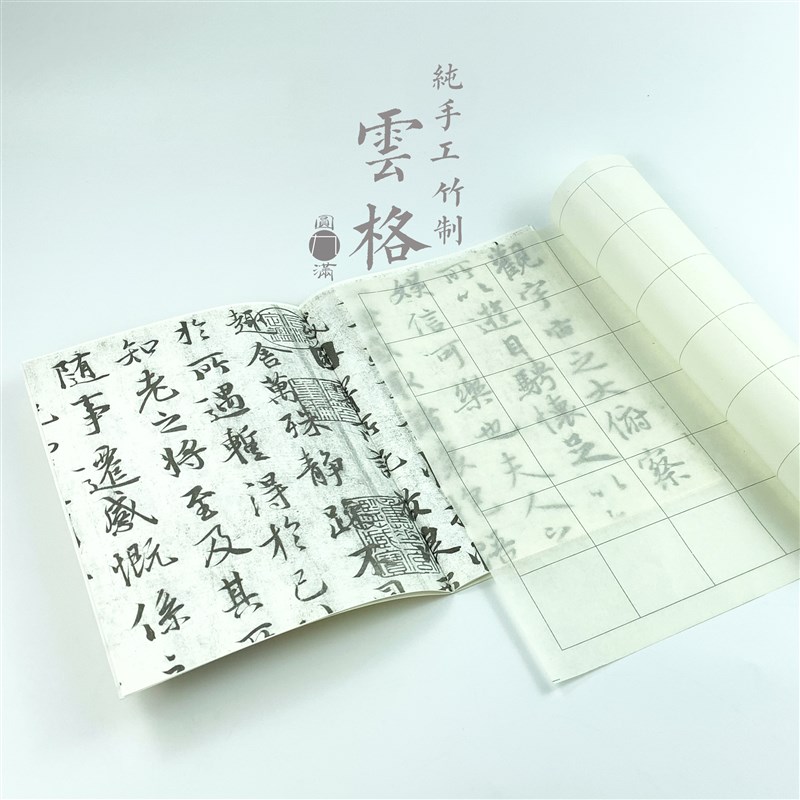 純手工竹制
雲格
圓滿
觀宇宙之大俯察
所以遊目騁懷足以
娛信可樂也夫人
因寄所託放浪
趣舍萬殊靜躁不同
於所遇暫得於己
知老之將至及其所
隨事遷感慨係之